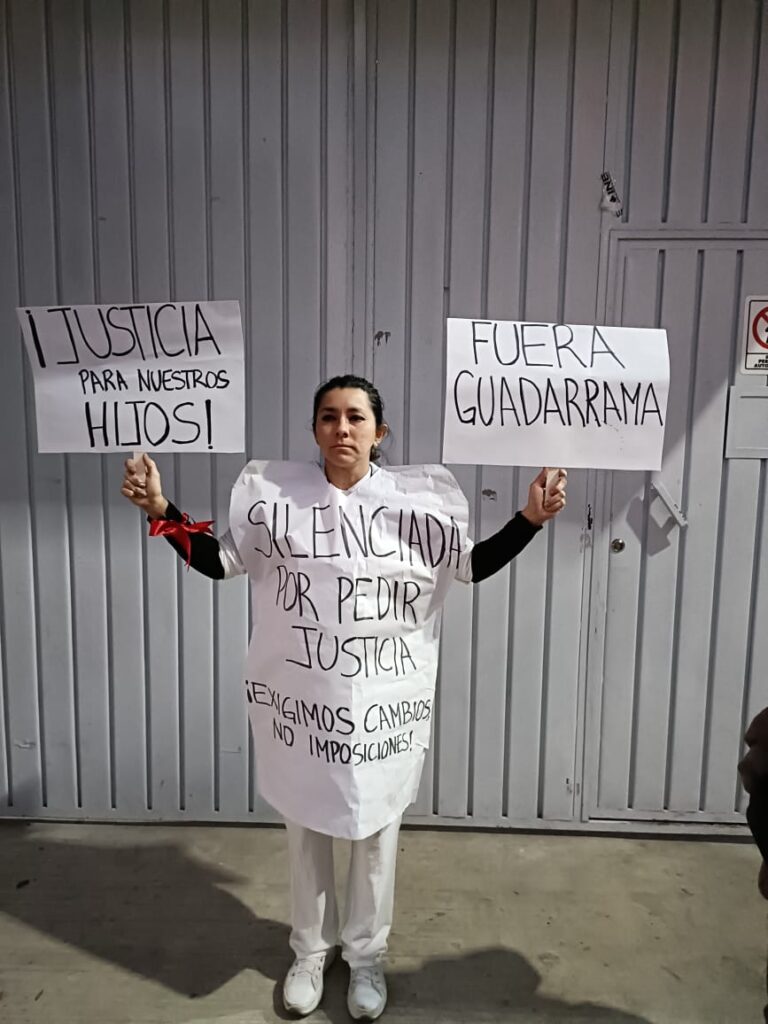 ¡JUSTICIA
PARA NUESTROS
HIJOS!
FUERA
GUADARRAMA
SILENCIADA
POR PEDIR
JUSTICIA
¡EXIGIMOS CAMBIOS,
NO IMPOSICIONES!